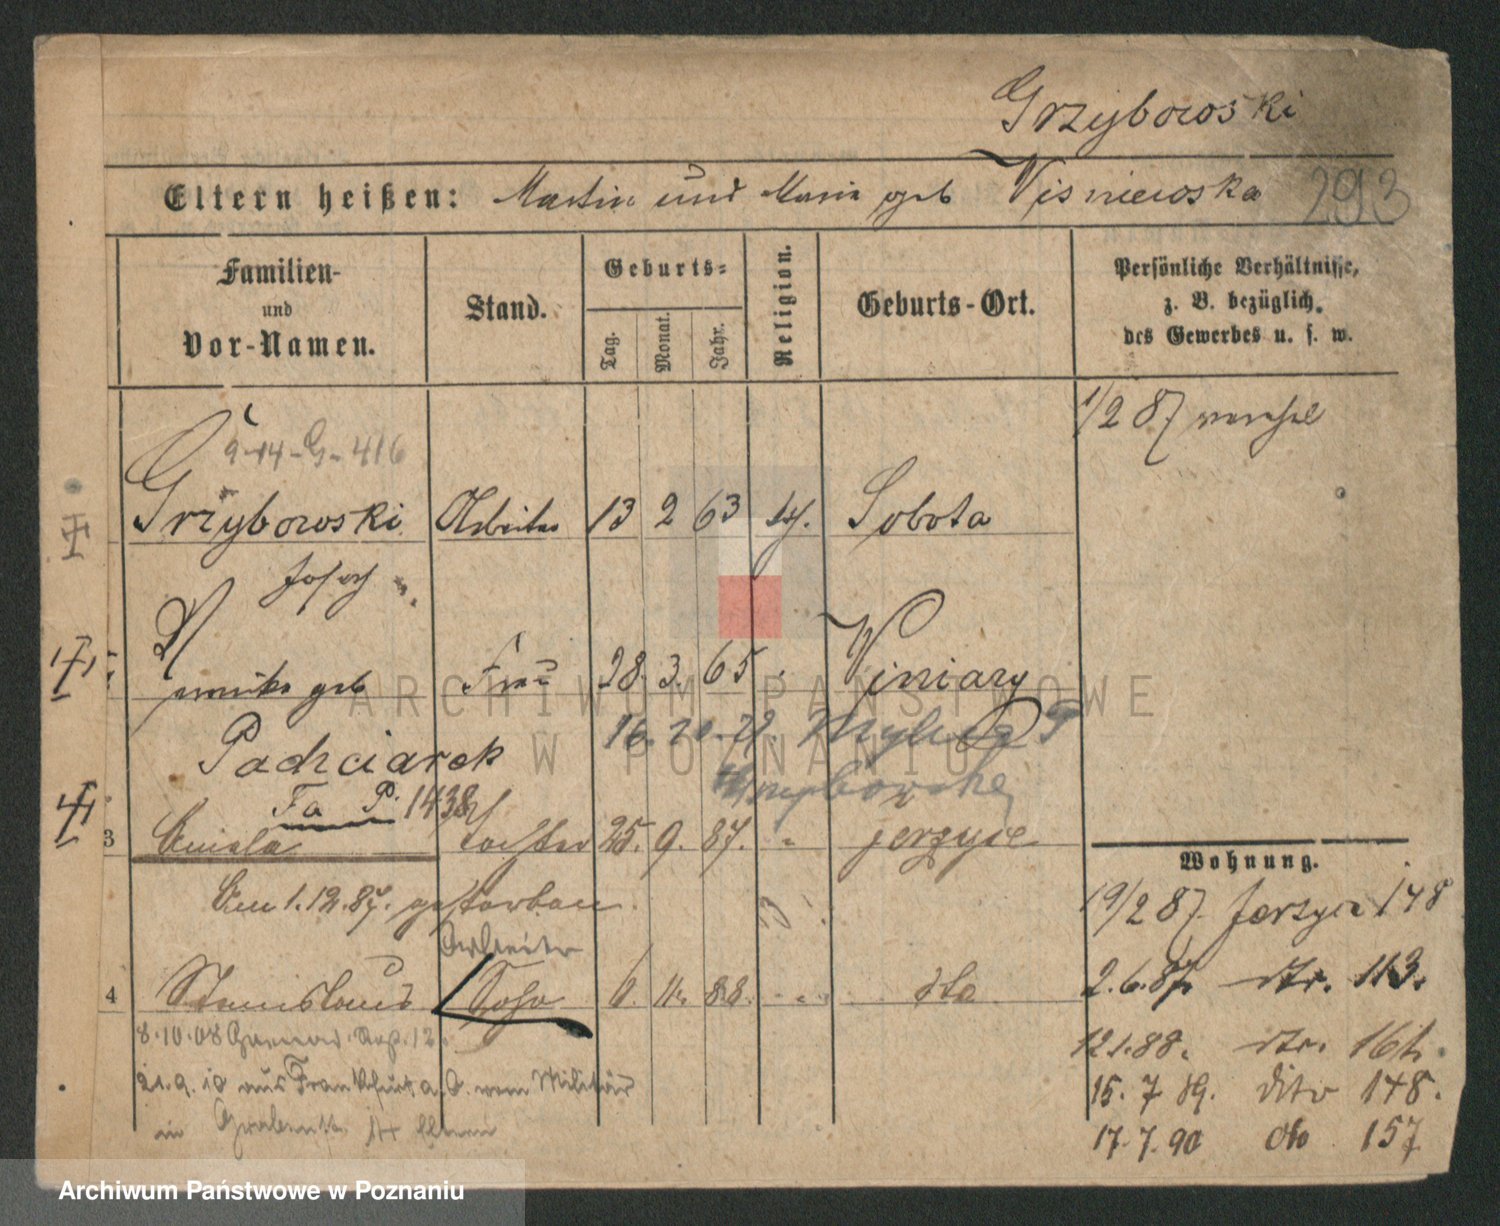 Grzybowski
Eltern heißen: Martin und Marie geb Visniewska 293
Familien-
und
Vor-Namen.
Stand.
Geburts-
Tag.
Monat.
Jahr.
Religion.
Geburts-Ort.
Persönliche Verhältnisse,
z. B. bezüglich
des Gewerbes u. s. w.
1/2 87
9-14-G-416
Grzybowski Arbeiter 13 2 63 Sobota
Josef
geb Frau 28. 3. 65 Viniary
Pachciarek 16.
Fa P. 1438
3 Tochter 25. 9. 87. " jerzyce
Am 1.12.87. gestorben
Arbeiter
4 Stanislaus Sohn 6. 11. 88. " dto
8.10.08
21.9.10 aus Frankfurt a. O. vom Militär
in
Wohnung.
19/2 87. Jerzyce 148
2.6.87. dto. 113.
12.1.88. dto. 161.
15. 7 89. dito 148.
17.7.90 dto 157
ARCHIWUM PAŃSTWOWE
W POZNANIU
Archiwum Państwowe w Poznaniu